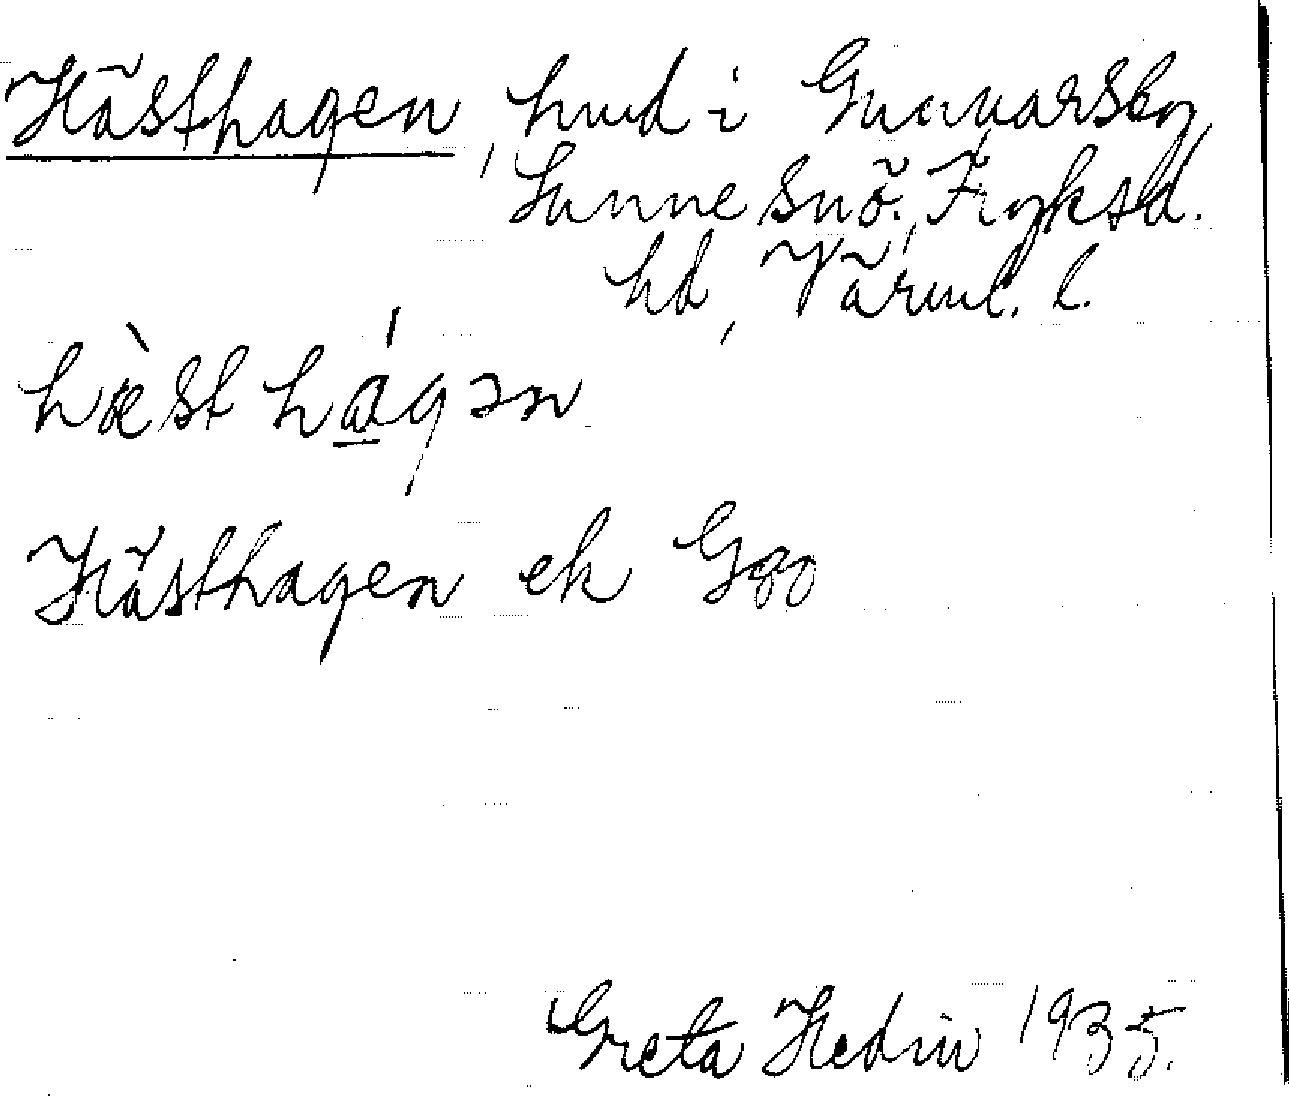 Hästhagen, hmd i Gunnarsby,
Sunne snö., Fryksd.
hd, Värml. l.
hæ̀st há̱gən
Hästhagen ek G80
Greta Hedin 1935.